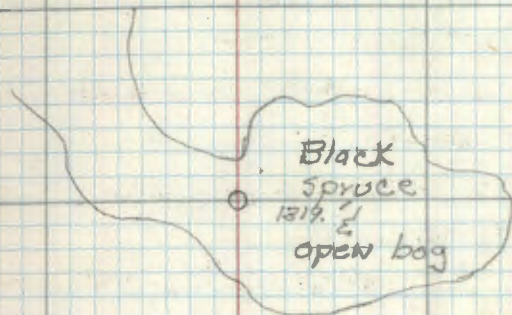 Black
Spruce
1319.'
&
open bog